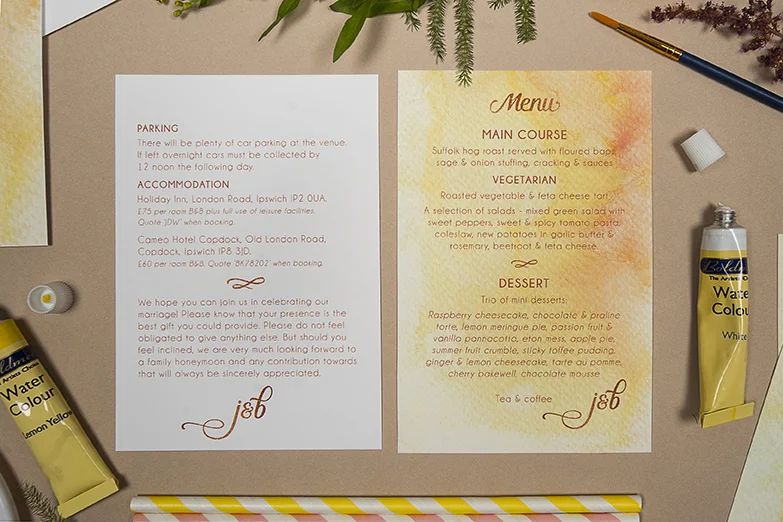 PARKING
There will be plenty of car parking at the venue.
If left overnight cars must be collected by
12 noon the following day.
ACCOMMODATION
Holiday Inn, London Road, Ipswich IP2 0UA.
£75 per room B&B plus full use of leisure facilities.
Quote 'JDW' when booking.
Cameo Hotel Copdock, Old London Road,
Copdock, Ipswich IP8 3JD.
£60 per room B&B. Quote 'BK78202' when booking.
We hope you can join us in celebrating our
marriage! Please know that your presence is the
best gift you could provide. Please do not feel
obligated to give anything else. But should you
feel inclined, we are very much looking forward to
a family honeymoon and any contribution towards
that will always be sincerely appreciated.
j&b
Menu
MAIN COURSE
Suffolk hog roast served with floured baps,
sage & onion stuffing, cracking & sauces
VEGETARIAN
Roasted vegetable & feta cheese tart
A selection of salads - mixed green salad with
sweet peppers, sweet & spicy tomato pasta,
coleslaw, new potatoes in garlic butter &
rosemary, beetroot & feta cheese.
DESSERT
Trio of mini desserts:
Raspberry cheesecake, chocolate & praline
torte, lemon meringue pie, passion fruit &
vanilla pannacotta, eton mess, apple pie,
summer fruit crumble, sticky toffee pudding,
ginger & lemon cheesecake, tarte au pomme,
cherry bakewell, chocolate mousse
Tea & coffee
j&b
Water
Colour
Lemon Yellow
The Artists Choi
Wate
Colou
White